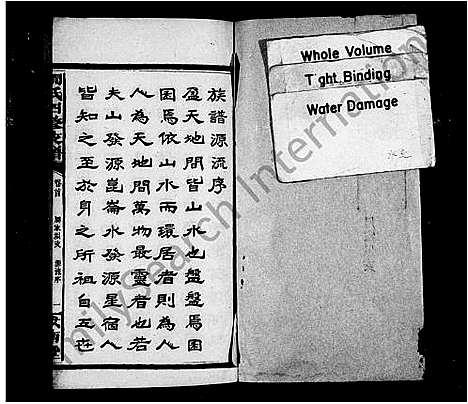 族譜源流序
盈天地間皆山水也盤盤焉囷
囷焉依山水而環居者則為人
人為天地間萬物最靈者也若
夫山發源崑崙水發源星宿人
皆知之至於身之所祖自五世
卷首
Whole Volume
Tight Binding
Water Damage
FamilySearch International